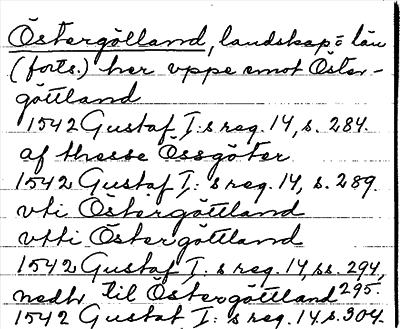 Östergötland, landskap o län
(forts.) her vppe emot Öster-
göttland
1542 Gustaf I:s reg. 14, s. 284.
af thesse Össgöter
1542 Gustaf I:s reg. 14, s. 289.
vti Östergöttland
vtti Östergöttland
1542 Gustaf I:s reg. 14, ss. 294,
295.
nedh til Östergöttland
1542 Gustaf I:s reg. 14. s. 304.